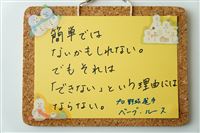 簡単では
ないかもしれない。
でもそれは
「できない」という理由には
ならない。
プロ野球選手
ベーブ・ルース